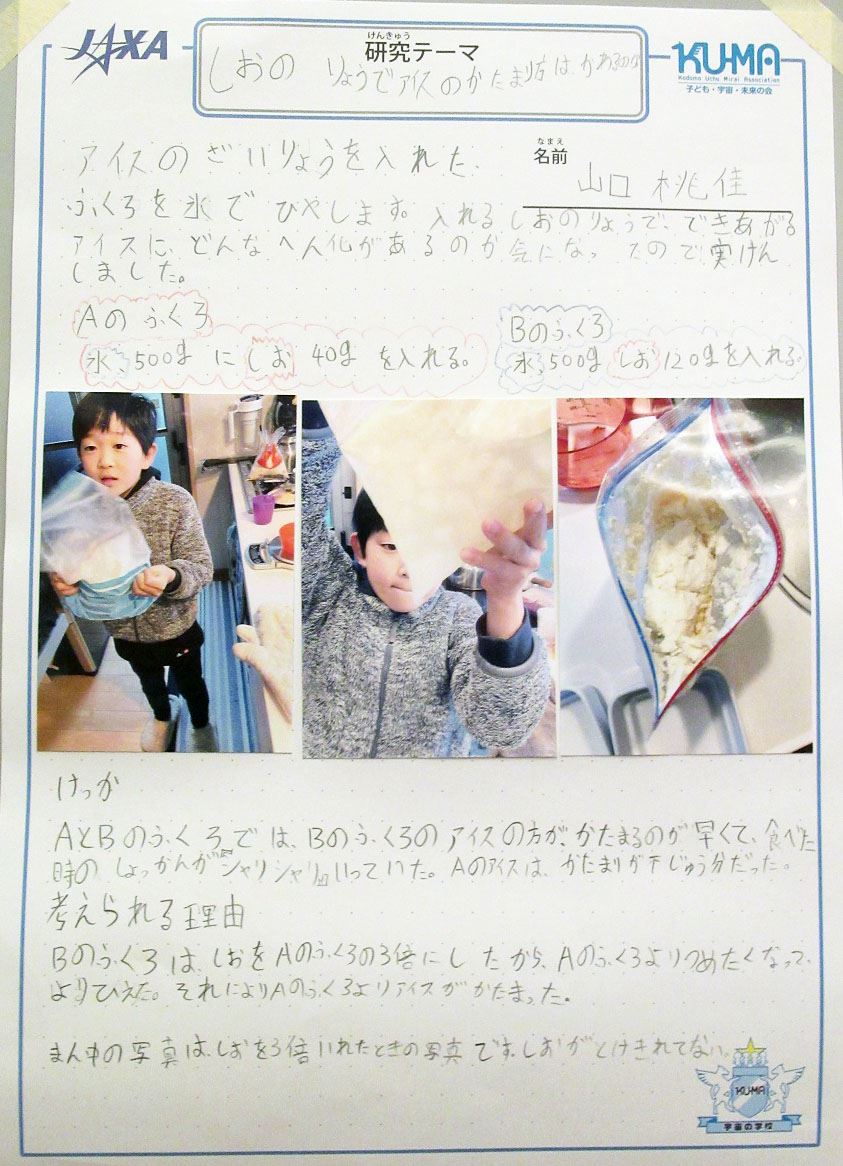 JAXA
けんきゅう
研究テーマ
しおの りょうでアイスのかたまり方は、か
KU-MA
Kodomo Uchu Mirai Association
子ども・宇宙・未来の会
なまえ
名前
山口 桃佳
アイスのざいりょうを入れた、
ふくろを氷でひやします。入れるしおのりょうで、できあがる
アイスに、どんなへん化があるのか気になったので実けん
しました。
Aのふくろ
氷、500gにしお40gを入れる。
Bのふくろ
氷、500gしお120gを入れる。
けっか
AとBのふくろでは、Bのふくろのアイスの方が、かたまるのが早くて、食べた
時のしょっかんが『シャリシャリ』いっていた。Aのアイスは、かたまりが不じゅう分だった。
考えられる理由
Bのふくろは、しおをAのふくろの3倍にしたから、Aのふくろよりつめたくなって、
よりひえた。それによりAのふくろよりアイスがかたまった。
まん中の写真は、しおを3倍いれたときの写真です。しおがとけきれてない。
KU-MA
宇宙の学校